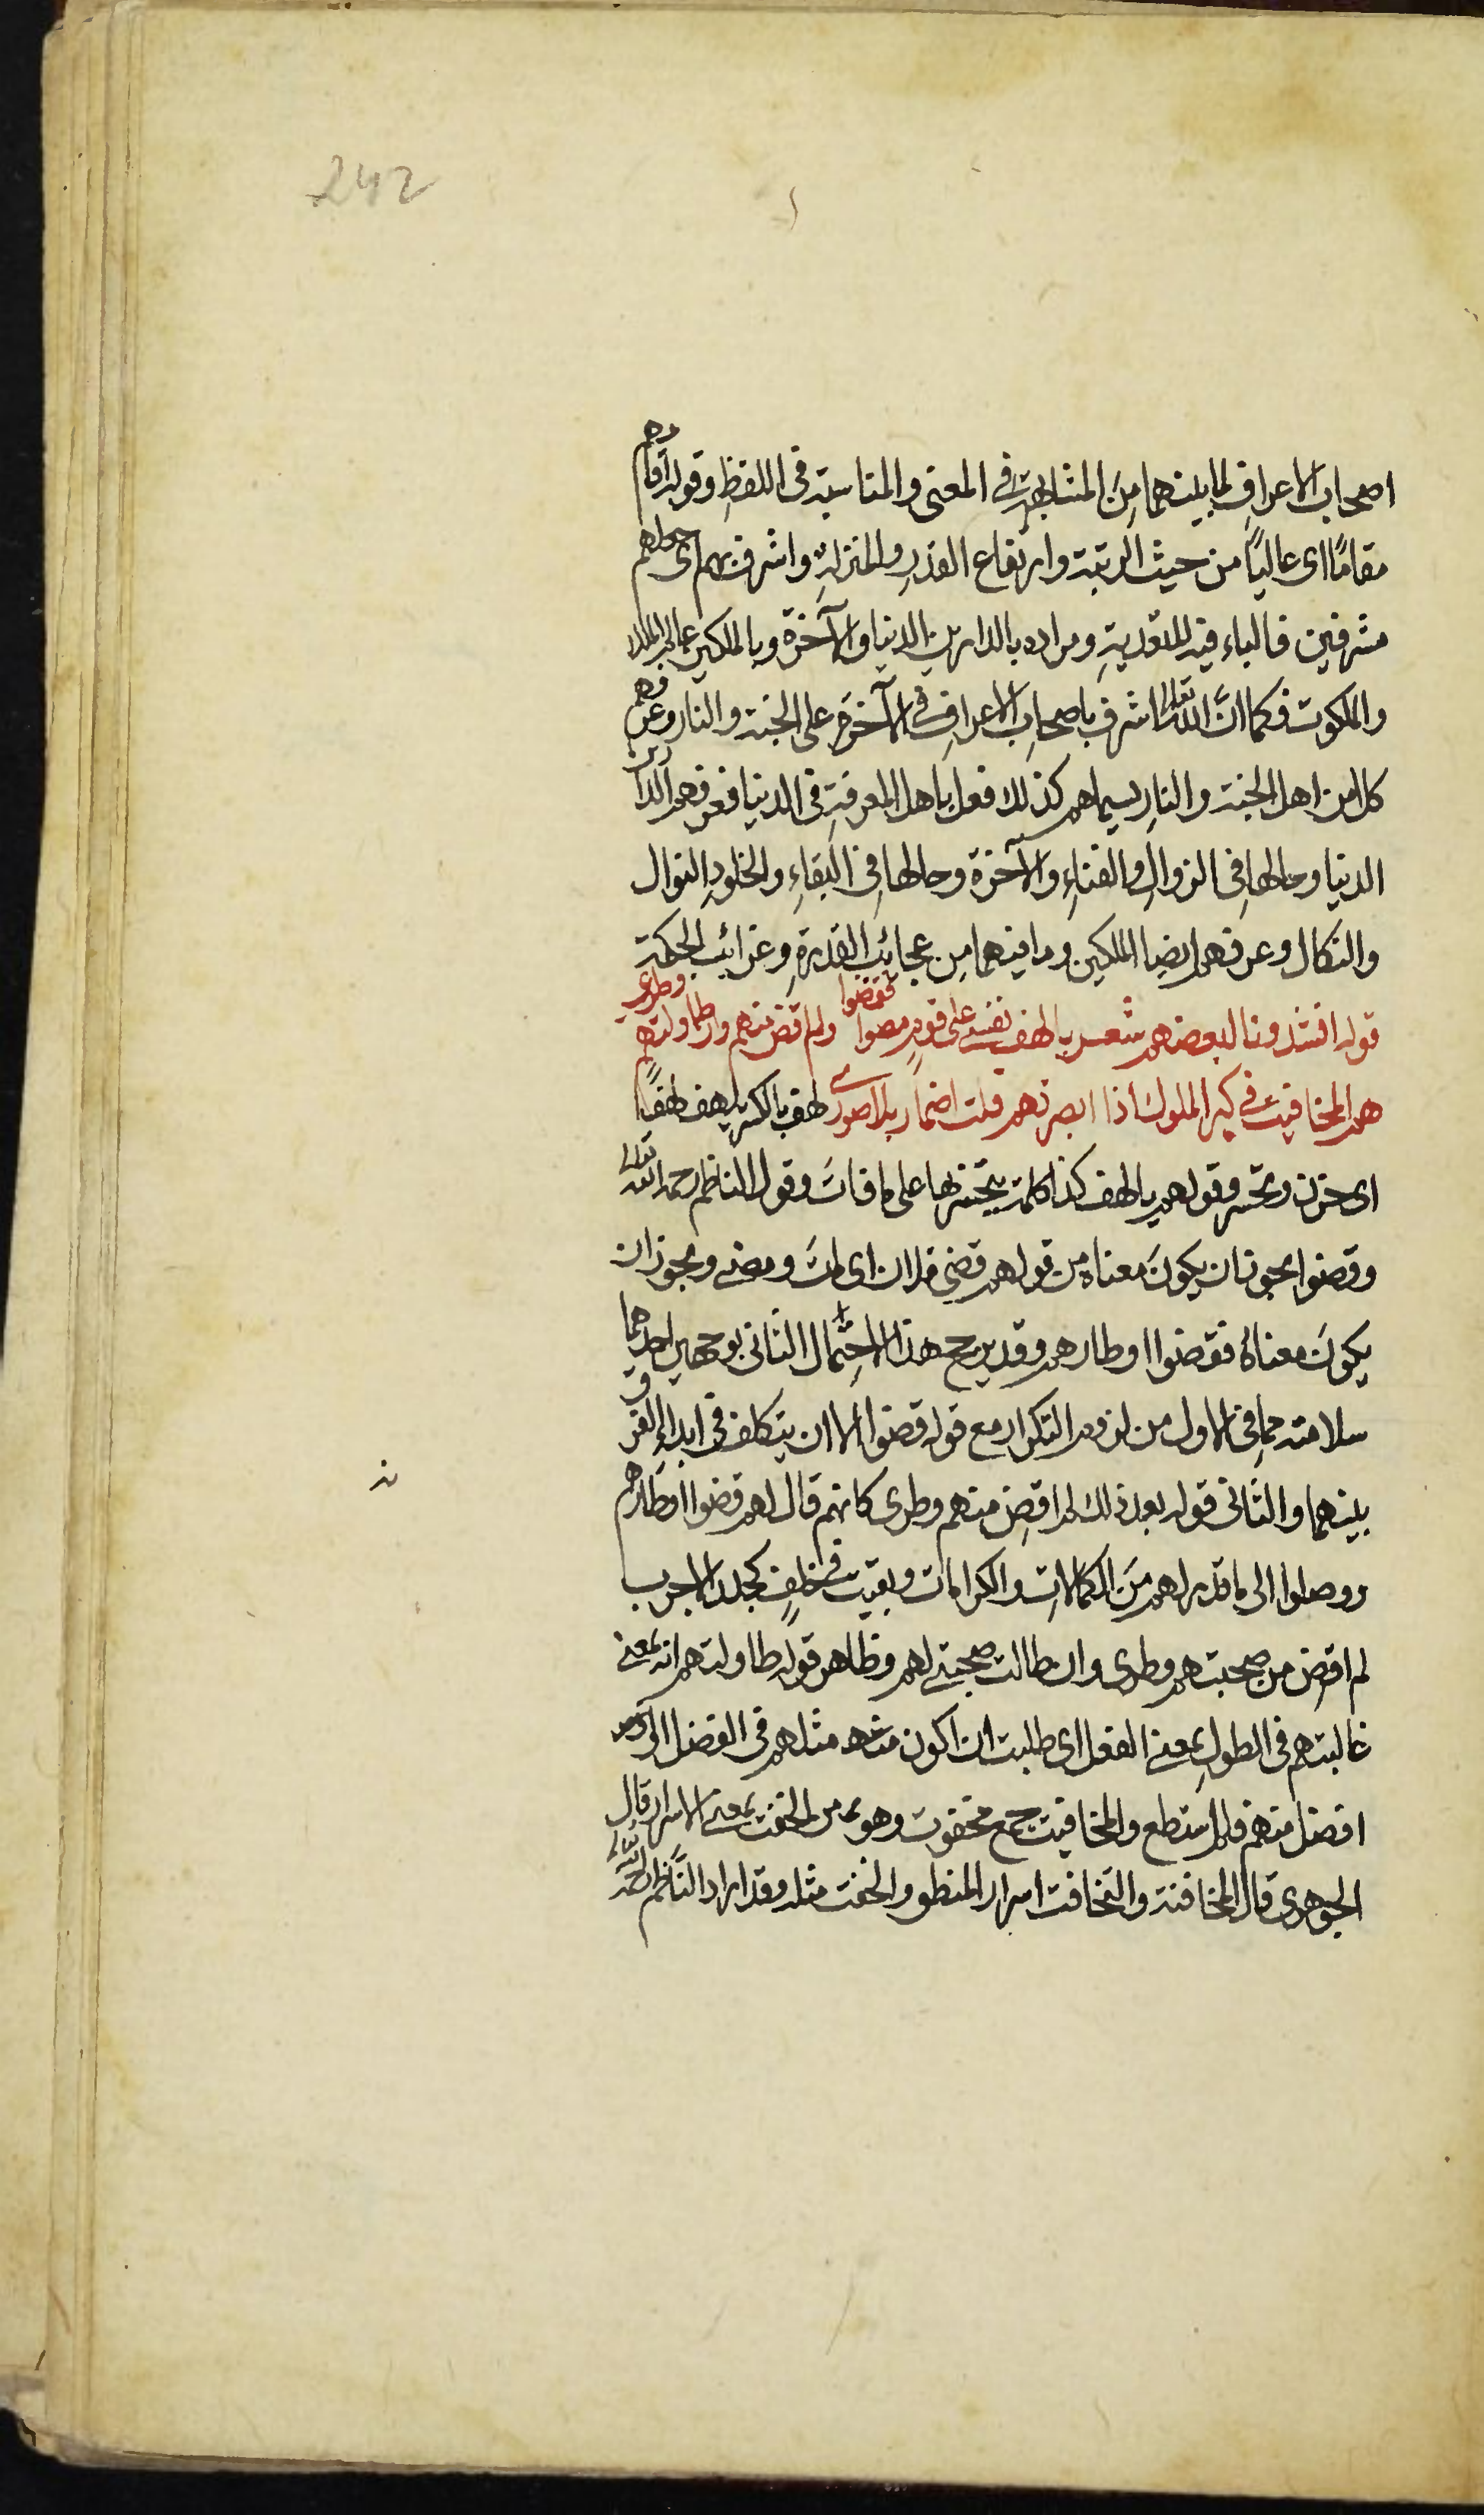 242
اصحاب الاعراف لما بينهما مِنَ المشابهة في المعنى والمناسبة في اللفظِ وقوله اقامهم
مقامًا اى عاليًا من حيث الرتبة وارتفاع القدرِ والمنزلةِ واشرف بهم اى جعلهم
مشرفين فالباء فيه للتعديةِ ومراده بالدارين الدنيا والآخرة وبالملكين عالم الملك
والملكوت فكما انَّ الله تعالى اشرف باصحابِ الاعرافِ في الآخرة على الجنة والنار وعرفهم
كلا من اهل الجنة والنارِ بسيماهم كذلك فعل باهل المعرفةِ في الدنيا فعرفهم الدارين
الدنيا وحالها في الزوالِ والفناءِ والآخرة وحالها في البقاءِ والخلودِ النوال
والنكال وعرفهم ايضا الملكين وما فيهما مِن عجائب القدرةِ وغرائب الحكمة
قوله انشدونا لبعضهم شعر يا لهف نفسي على قومٍ مضوا فقضوا ولم اقض منهم وان طاولتهم وطرى
هم المخافيت في كبر الملوك اذا ابصرتهم قلت اضمار بلا صور لهف بالكسر يلهف لهفًا
اى حزن وتحسر وقولهم يا لهف كذا كلمة يتحسر بها على ما فاتَ وقول الناظم رحمه الله تعالى
وقضوا يجوز ان يكونَ معناه من قولهم قضى فلان اى ماتَ ومضى ويجوز ان
يكونَ معناهُ فقضوا اوطارهم وقد يرجح هذا الاحتمال الثانى بوجهين احدهما
سلامته مما في الاول من لزوم التكرار مع قوله قضوا الا ان يتكلف في ابداءِ الفرق
بينهما والثانى قوله بعد ذلك لم اقضِ منهم وطرى كانهم قال لهم قضوا اوطارهم
ووصلوا الى ما قدر لهم مِنَ الكمالاتِ والكرامات وبقيت في خلفٍ كجلد الاجرب
لم اقضِ من صحبتهم وطرى وان طالت صحبتي لهم وظاهر قوله طاولتهم انه بمعنى
غالبتهم في الطولِ بمعنى الفعل اى طلبت ان اكون مثلهم في الفضل او
افضل منهم فلم استطع والمخافيت جمع مخفوت وهو من الخفت بمعنى الاسرار قال
الجوهرى قال المخافتة والتخافت اسرار المنطق والخفت مثله وقد اراد النَّاظم رحمه الله